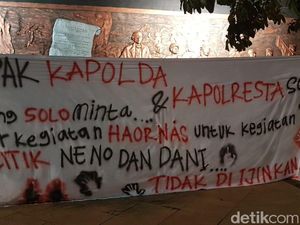 PAK KAPOLDA
& KAPOLRESTA
SOLO minta....
kegiatan HAORNAS untuk kegiatan
NENO DAN DANI....
TIDAK DI IJINKAN
detikcom